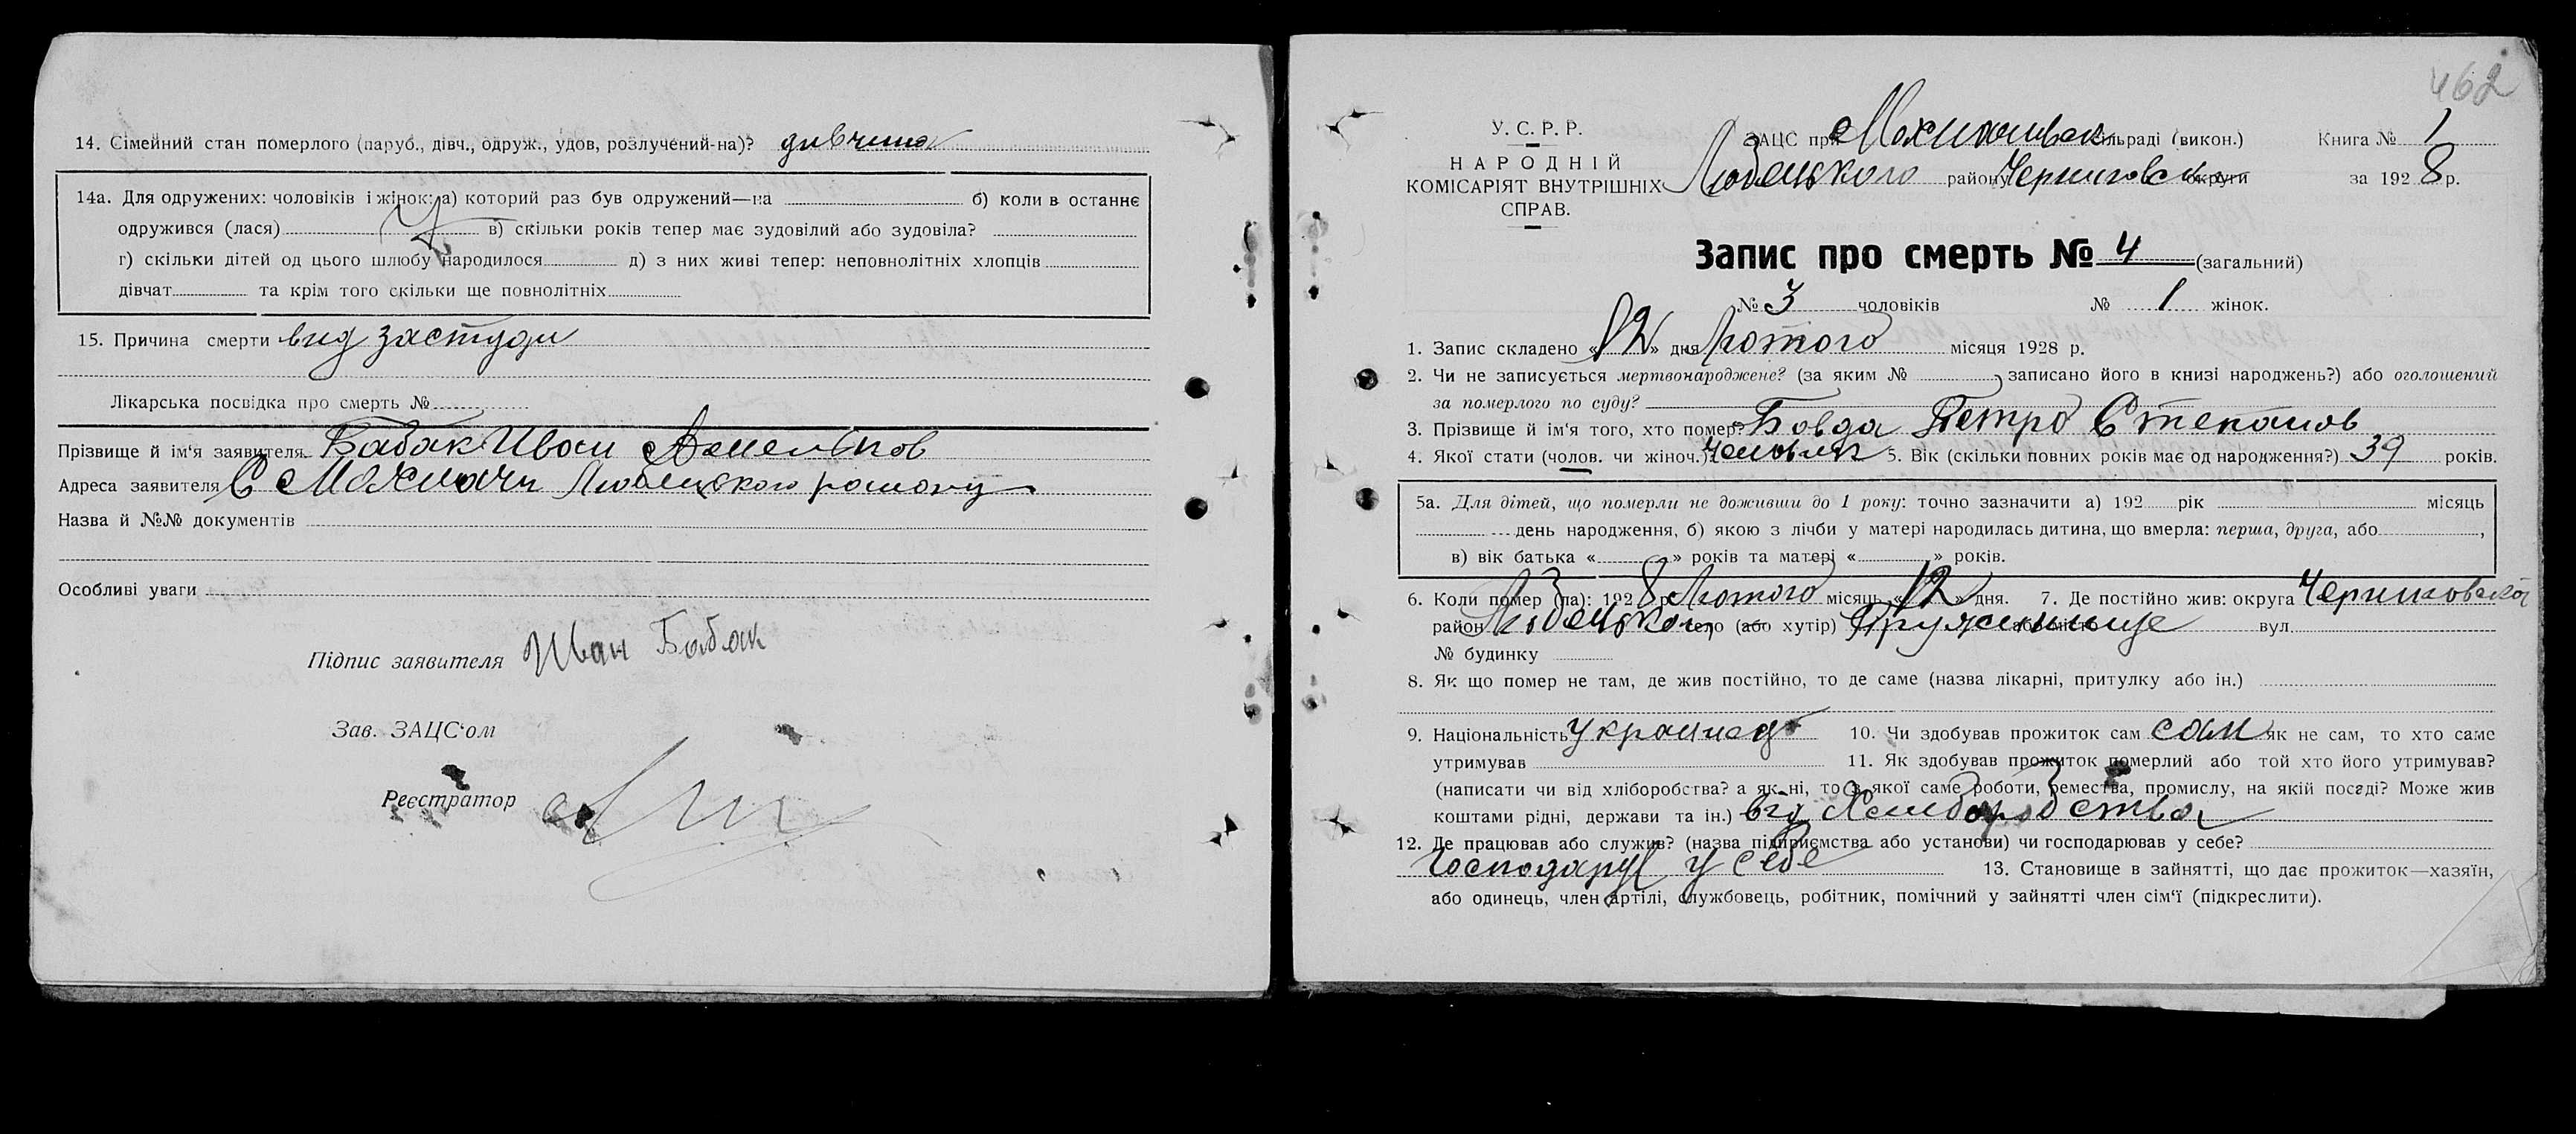 14. Сімейний стан померлого (паруб., дівч., одруж., удов, розлучений-на)? дивчина
14а. Для одружених: чоловіків і жінок: а) который раз був одружений—на б) коли в останнє
одружився (лася) в) скільки років тепер має зудовілий або зудовіла?
г) скільки дітей од цього шлюбу народилося д) з них живі тепер: неповнолітніх хлопців
дівчат та крім того скільки ще повнолітніх
15. Причина смерти вид застуди
Лікарська посвідка про смерть №
Прізвище й ім'я заявителя Бабак Иван
Адреса заявителя С Мохначи Любецкого району
Назва й №№ документів
Особливі уваги
Підпис заявителя Иван Бабак
Зав. ЗАЦС'ом
Реєстратор
462
У. С. Р. Р.
НАРОДНІЙ
КОМІСАРІЯТ ВНУТРІШНІХ
СПРАВ.
ЗАЦС при сільраді (викон.) Книга № 1
Любецького району округи за 1928 р.
Запис про смерть № 4 (загальний)
№ 3 чоловіків № 1 жінок.
1. Запис складено «12» дня Лютого місяця 1928 р.
2. Чи не записується мертвонароджене? (за яким № записано його в книзі народжень?) або оголошений
за померлого по суду?
3. Прізвище й ім'я того, хто помер? Бовда Петро Степанов
4. Якої стати (чолов. чи жіноч.) 5. Вік (скільки повних років має од народження?) 39 років.
5а. Для дітей, що померли не доживши до 1 року: точно зазначити а) 192 рік місяць
день народження, б) якою з лічби у матері народилась дитина, що вмерла: перша, друга, або ,
в) вік батька « » років та матері « » років.
6. Коли помер (ла): 1928 р. Лютого місяць «12» дня. 7. Де постійно жив: округа
район Любецького село (або хутір) або місто вул.
№ будинку
8. Як що помер не там, де жив постійно, то де саме (назва лікарні, притулку або ін.)
9. Національність 10. Чи здобував прожиток сам сам як не сам, то хто саме
утримував 11. Як здобував прожиток померлий або той хто його утримував?
(написати чи від хліборобства? а як ні, то з якої саме роботи, ремества, промислу, на якій посаді? Може жив
коштами рідні, держави та ін.) від Хлиборобства
12. Де працював або служив? (назва підприємства або установи) чи господарював у себе?
Господарув у себе 13. Становище в зайнятті, що дає прожиток—хазяїн,
або одинець, член артілі, службовець, робітник, помічний у зайнятті член сім'ї (підкреслити).